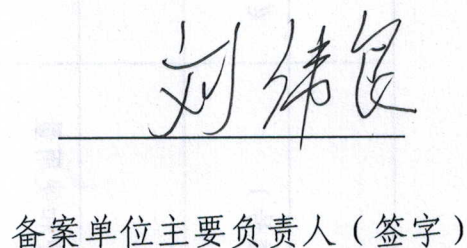 刘伟良
备案单位主要负责人（签字）